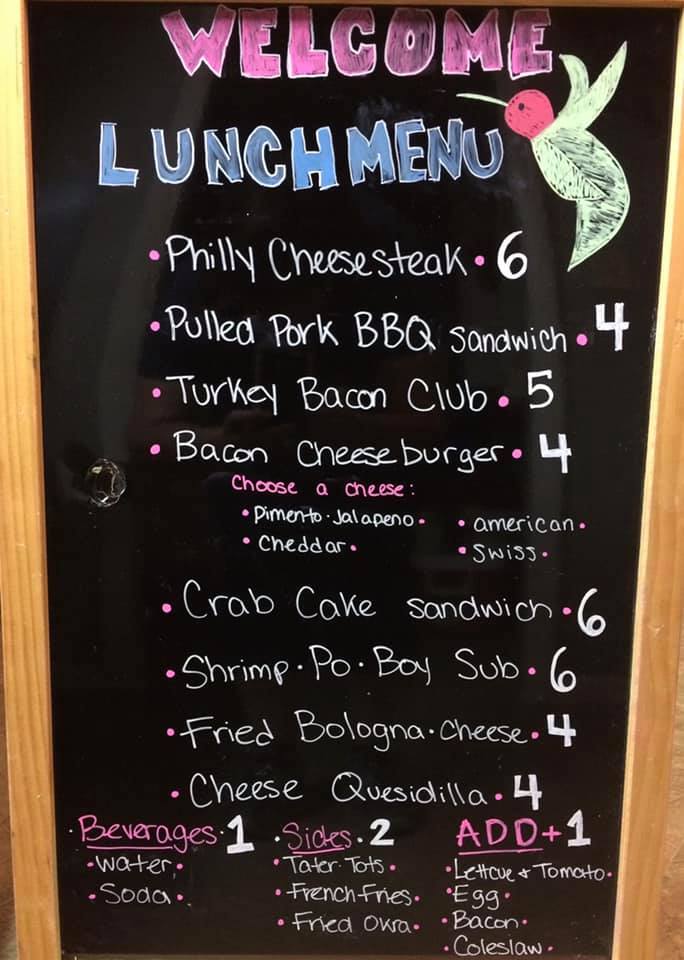 WELCOME
LUNCH MENU
• Philly Cheesesteak • 6
• Pulled Pork BBQ Sandwich • 4
• Turkey Bacon Club • 5
• Bacon Cheeseburger • 4
Choose a cheese:
• Pimento • Jalapeno • • american •
• Cheddar • • Swiss •
• Crab Cake sandwich • 6
• Shrimp • Po • Boy Sub • 6
• Fried Bologna • cheese • 4
• Cheese Quesidilla • 4
• Beverages • 1
• Water •
• Soda •
• Sides • 2
• Tater Tots •
• French Fries •
• Fried Okra •
ADD + 1
• Lettcue + Tomato •
• Egg •
• Bacon •
• Coleslaw •